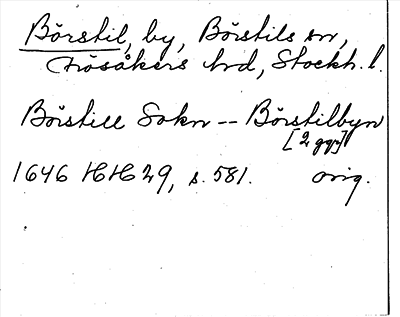 Börstil, by, Börstils sn,
Frösåkers hd, Stockh. l.
Börstill Sokn -- Börstilbyn
[2 ggr]
1646 HH 29, s. 581. orig.